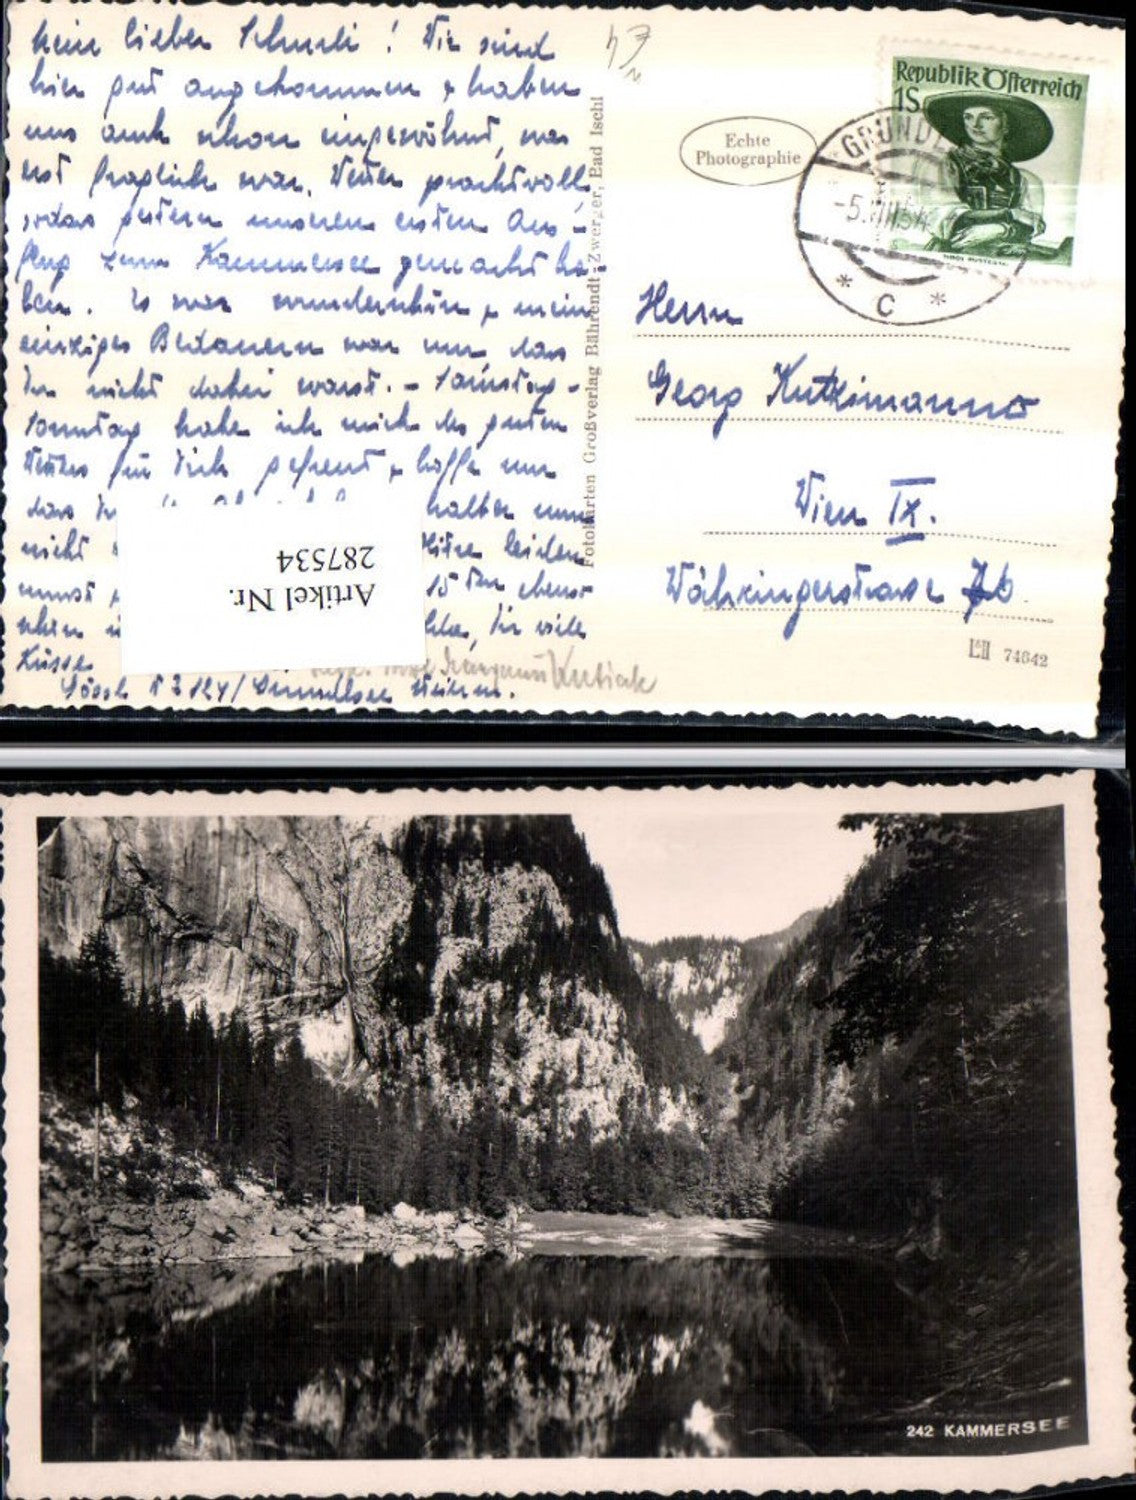 Mein lieber Schurli! Wir sind
hier gut angekommen & haben
uns auch schon eingewöhnt, was
erst fraglich war. Wetter prachtvoll,
sodas gestern unseren ersten Aus-
flug zum Kammersee gemacht ha-
ben. Es war wunderschön & mein
einziges Bedauern war nur das
Du nicht dabei warst. - Samstag -
Sonntag habe ich mich des guten
Wetters für Dich gefreut & hoffe nur
das halten nun
nicht Hitze leiden
musst
schön viele
Küsse
Gössl 124 / Grundlsee Steierm.
Fotokarten Großverlag Bährendt-Zwerger, Bad Ischl
Echte
Photographie
Republik Österreich
1S
GRUNDL
-5.VIII54
* C *
Herrn
Georg
Wien IX.
Währingerstrasse
74642
Artikel Nr.
287534
242 KAMMERSEE